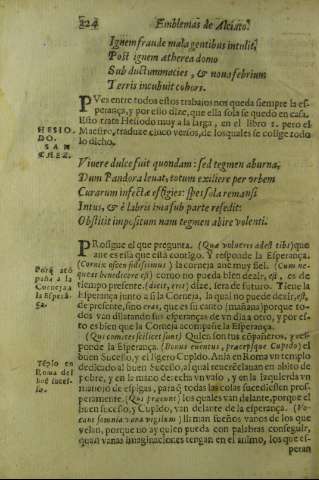 224 Emblemas de Alciato.
Ignem fraude mala gentibus intulit,
Post ignem ætherea domo
Sub ductum macies, & noua febrium
Terris incubuit cohors.
PVes entre todos estos trabajos nos queda siempre la es-
perança, y por esso dize, que ella sola se quedo en casa.
Esto trata Hesiodo muy a la larga, en el libro 1. pero el
HESIO
DO.
SAN
CHEZ.
Maestro, traduze cinco versos, de los quales se colige todo
lo dicho.
Viuere dulce fuit quondam: sed tegmen aburna,
Dum Pandora leuat, totum exiliere per orbem
Curarum infectæ effigies: spes sola remansit
Intus, & è labris imasub parte resedit:
Obstitit impositum nam tegmen abire volenti.
PRosigue el que pregunta. (Quæ volucris adest tibi) que
aue es esta que està contigo. Y responde la Esperança.
(Cornix oscen fidissimus) la corneja aue muy fiel. (Cum ne-
Porq̃ acõ
paña a la
Corneja a
la Esperã-
ça.
queat benedicere est) como no pueda bien dezir, est, es de
tiempo presente. (dicit, erit) dize, sera de futuro. Tiene la
Esperança junto a si la Corneja, la qual no puede dezir, est,
de presente, sino cras, que es su canto (mañana) porque to-
dos van dilatando sus esperanças de vn dia a otro, y por es-
to es bien que la Corneja acompañe la Esperança.
(Qui comites scilicet sunt) Quien son tus cõpañeros, y res-
ponde la Esperança. (Bonus euentus, præcepsque Cupido) el
buen Sucesso, y el ligero Cupido. Auia en Roma vn templo
Tẽplo en
Roma del
buẽ suces-
so.
dedicado al buen Sucesso, al qual
pobre, y en la mano derecha vn vaso, y en la izquierda vn
manojo de espigas, para q̃ todas las cosas sucediessen pros-
peramente. (Qui præeunt) los quales van delante, porque el
buen sucesso, y Cupido, van delante de la esperança. (Vo-
cant somnia vana vigilum) llaman sueños vanos de los que
velan, porque no ay quien pueda con palabras conseguir,
quan vanas imaginaciones tengan en el animo, los que es-
peran